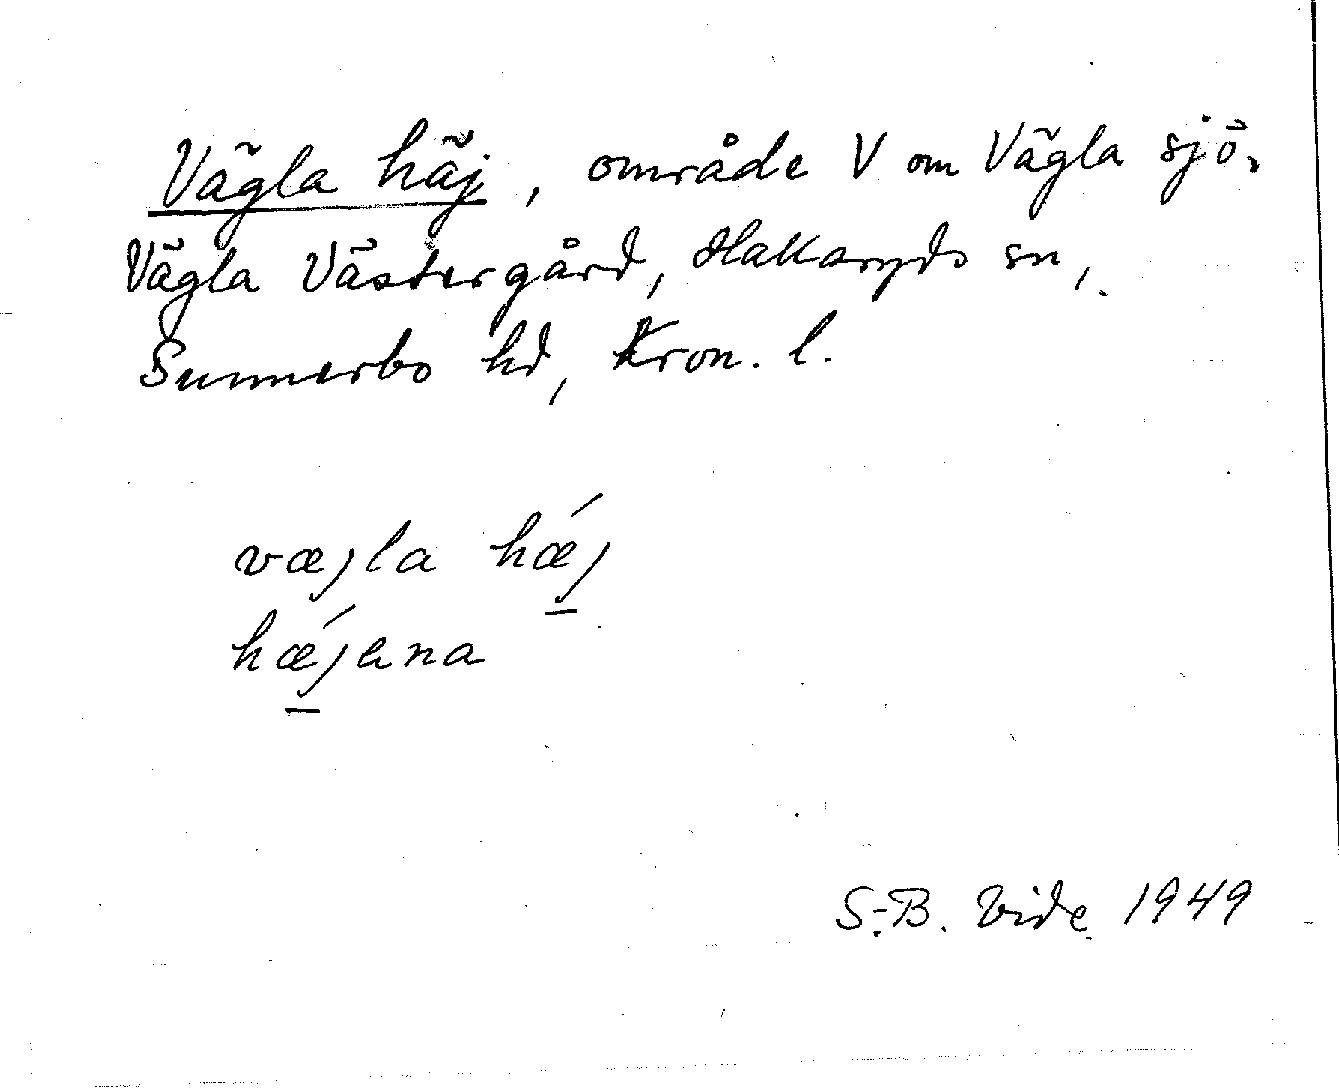 Vägla häj, område V om Vägla sjö,
Vägla Västergård, Hakaryds sn,
Sunnerbo hd, Kron. l.
væjla hǽj
hǽjena
S.-B. Vide 1949